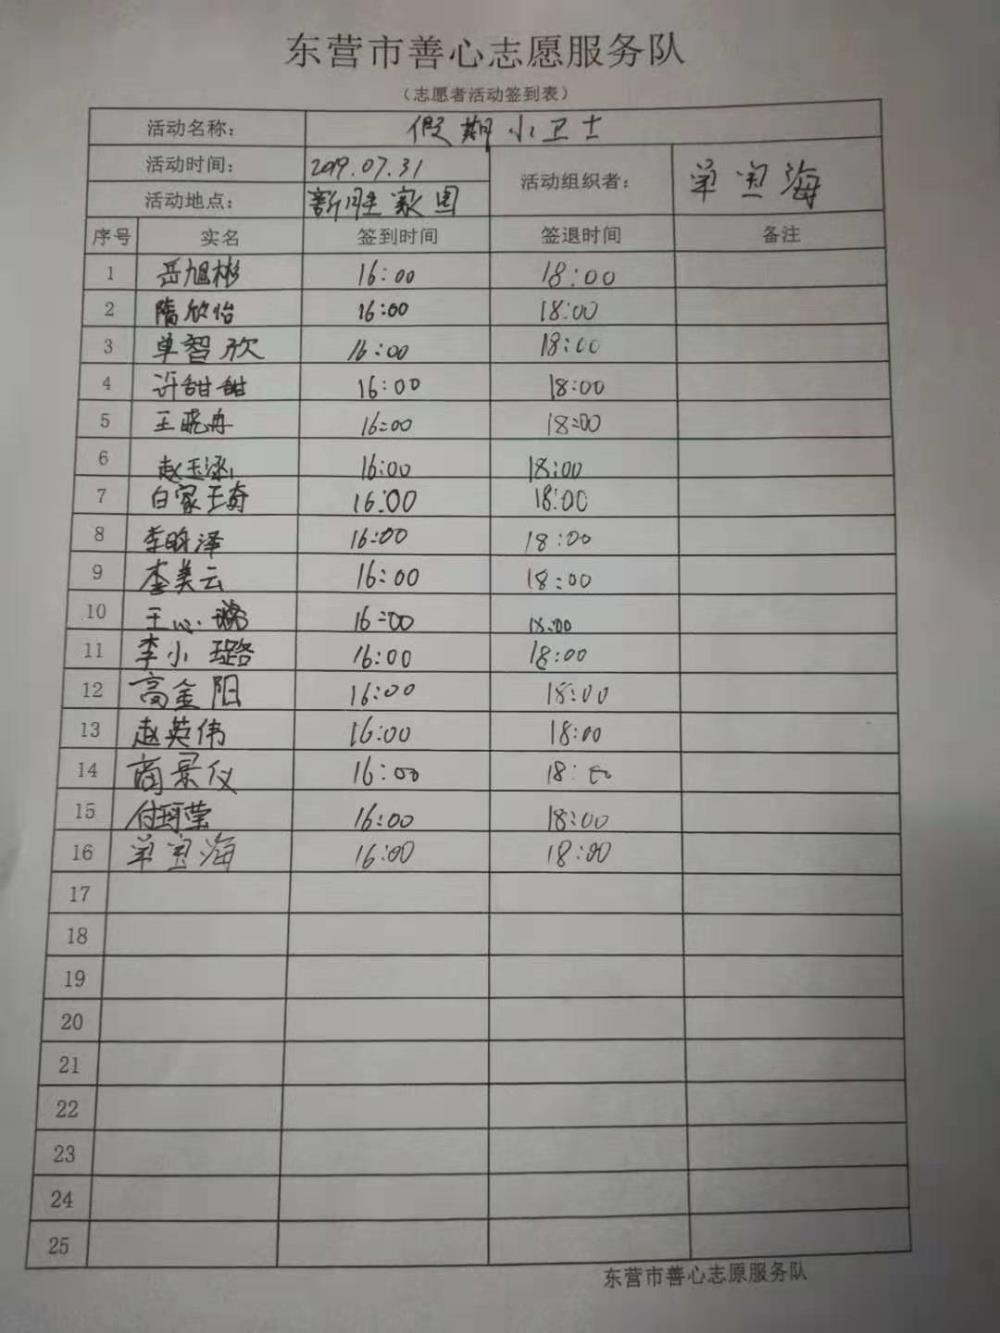 东营市善心志愿服务队
（志愿者活动签到表）
活动名称： 假期小卫士
活动时间： 2019.07.31 活动组织者： 单宝海
活动地点： 新胜家园
序号 实名 签到时间 签退时间 备注
1 岳旭彬 16:00 18:00
2 隋欣怡 16:00 18:00
3 单智欣 16:00 18:00
4 许甜甜 16:00 18:00
5 王晓冉 16:00 18:00
6 赵玉涵 16:00 18:00
7 白家琦 16:00 18:00
8 李昀泽 16:00 18:00
9 李美云 16:00 18:00
10 王心璐 16:00 18:00
11 李小璐 16:00 18:00
12 高金阳 16:00 18:00
13 赵英伟 16:00 18:00
14 商景仪 16:00 18:00
15 付珂莹 16:00 18:00
16 单宝海 16:00 18:00
17
18
19
20
21
22
23
24
25
东营市善心志原服务队